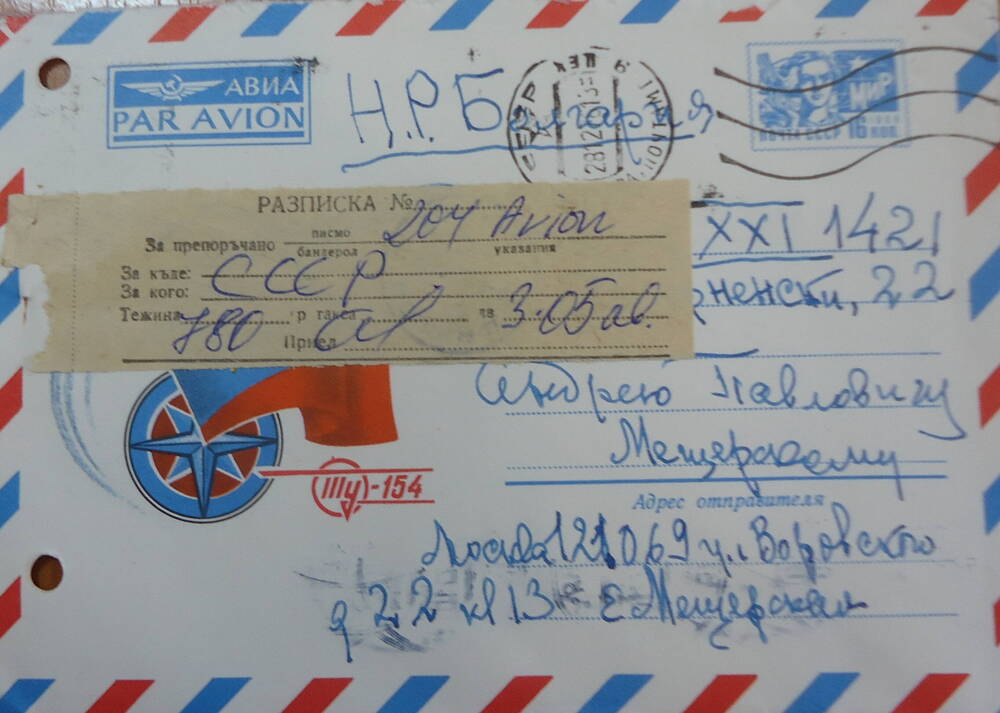 АВИА
PAR AVION
Н.Р. Болгария
СССР
28 12
МИР
ПОЧТА СССР 16 коп.
РАЗПИСКА № 204 Avion
За препоръчано писмо
бандерол указания
За къде: СССР
За кого:
Тежина 780 гр такса лв 3.05 лв.
Приел
XXI 1421
рненски, 22
Андрею Павловичу
Мещерскому
Ту-154
Адрес отправителя
Москва 121069 ул. Воровского
д 22 кв 13 Е Мещерская